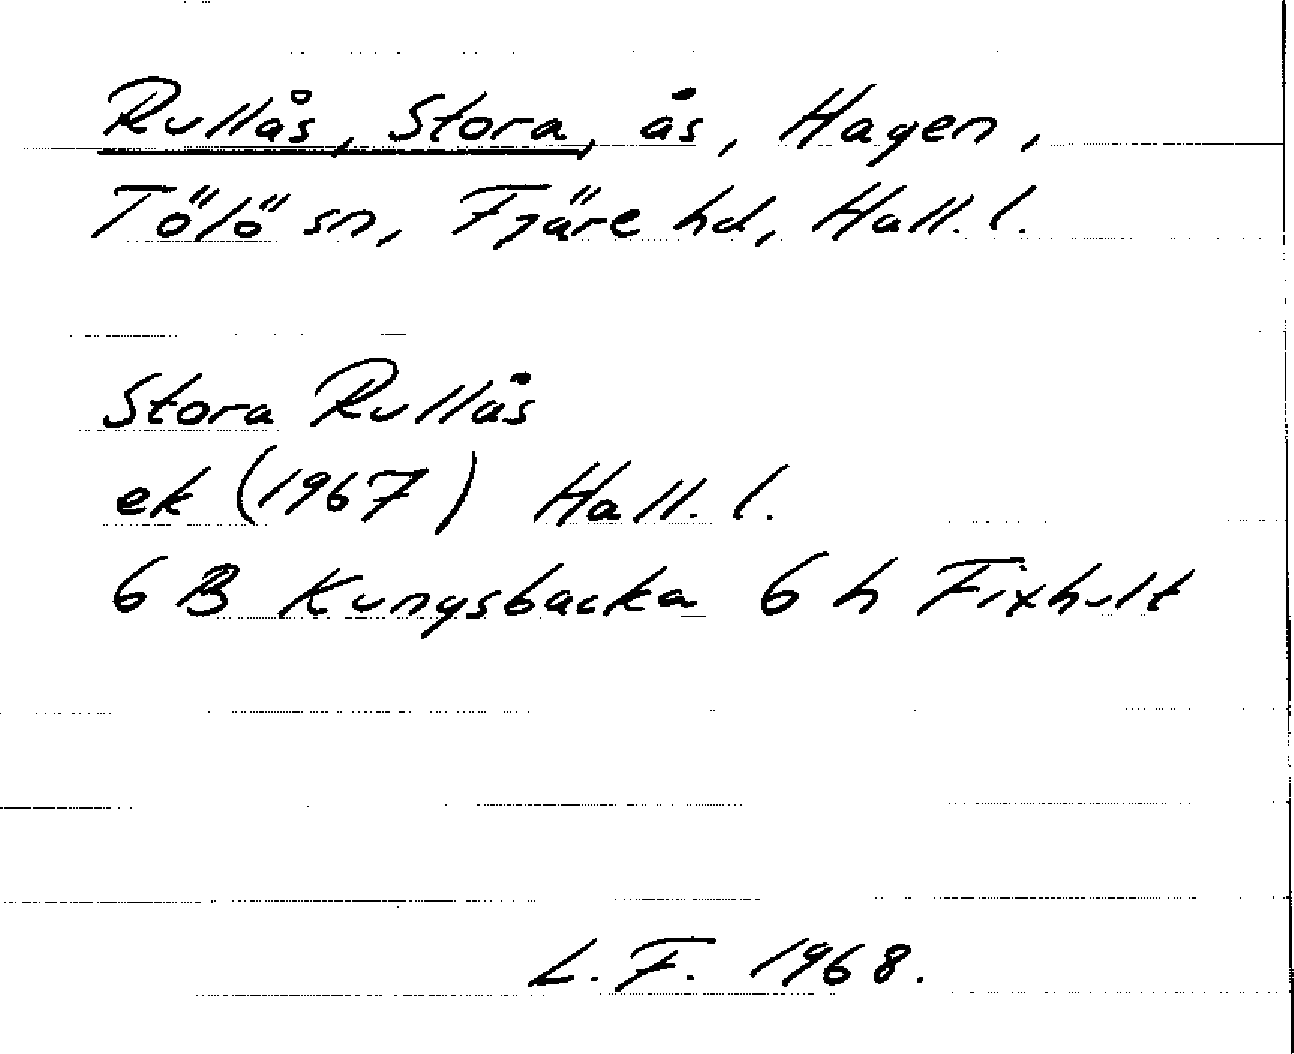 Rullås, Stora, ås, Hagen,
Tölö sn, Fjäre hd, Hall. l.
Stora Rullås
ek (1967) Hall. l.
6 B Kungsbacka 6 h Fixhult
L. F. 1968.